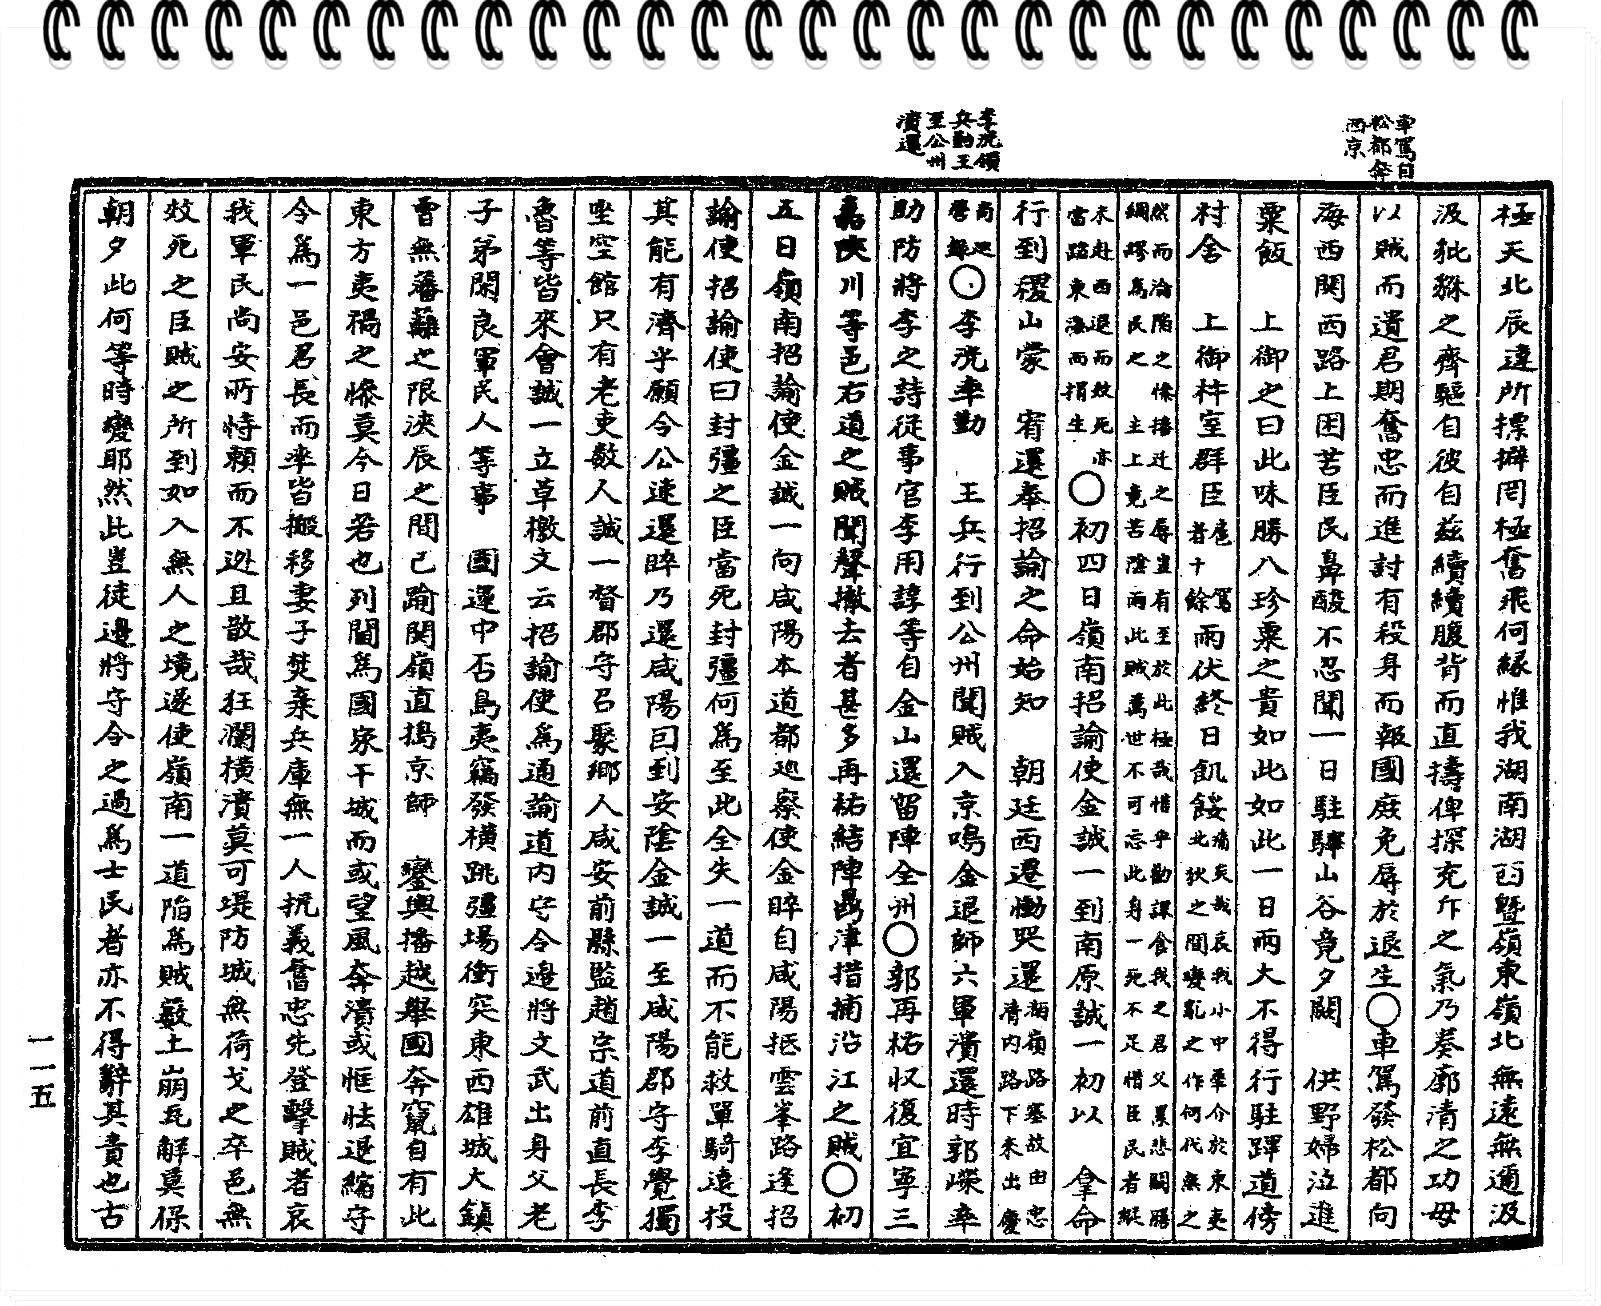 車駕自
松都幸
西京
李洸領
兵勤王
至公州
潰還
極天北辰違所摽擗罔極奮飛何緣惟我湖南湖西曁嶺東嶺北無遠無邇汲
汲豼貅之齊驅自彼自玆續續腹背而直擣俾探充斥之氣乃奏廓淸之功毋
以賊而遺君期奮忠而進討有殺身而報國庶免辱於退生〇車駕發松都向
海西関西路上困苦臣民鼻酸不忍聞一日駐驆山谷竟夕闕 供野婦泣進
粟飯 上御之曰此味勝八珍粟之貴如此如此一日雨大不得行駐蹕道傍
村舍 上御杵室群臣
扈 駕
者十餘
雨伏終日飢餒
痛矣哉哀我小中華介於東夷
北狄之間變亂之作何代無之
然而淪陷之慘播迁之辱豈有至於此極哉惜乎勸課食我之君父累悲闕膳
綱繆爲民之 主上竟苦陰雨此賊萬世不可忘此身一死不足惜臣民者縱
未赴西退而效死亦
當踏東海而捐生
〇初四日嶺南招諭使金誠一到南原誠一初以 拿命
行到稷山蒙 宥還奉招諭之命始知 朝廷西遷慟哭還
湖嶺路塞故由忠
淸內路下來出慶
尚巡
營錄
〇李洸率勤 王兵行到公州聞賊入京鳴金退師六軍潰還時郭嶸率
助防將李之詩從事官李用諄等自金山還留陣全州〇郭再祐收復宜寧三
嘉陜川等邑右道之賊聞聲撤去者甚多再祐結陣鼎津措捕沿江之賊〇初
五日嶺南招諭使金誠一向咸陽本道都巡察使金睟自咸陽抵雲峯路逢招
諭使招諭使曰封彊之臣當死封彊何爲至此全失一道而不能救單騎遠投
其能有濟乎願令公速還睟乃還咸陽囘到安陰金誠一至咸陽郡守李覺獨
坐空館只有老吏数人誠一督郡守召聚鄉人咸安前縣監趙宗道前直長李
魯等皆來會誠一立草檄文云招諭使爲通諭道內守令邊將文武出身父老
子弟閑良軍民人等事 國運中否島夷竊發橫跳彊場衝突東西雄城大鎭
曾無藩蘺之限浹辰之間已踰関嶺直搗京師 鑾輿播越擧國奔竄自有此
東方夷禍之慘莫今日若也列閫爲國家干城而或望風奔潰或恇怯退縮守
令爲一邑君長而率皆搬移妻子焚棄兵庫無一人抗義奮忠先登擊賊者哀
我軍民尚安所恃頼而不迯且散哉狂瀾橫潰莫可堤防城無荷戈之卒邑無
效死之臣賊之所到如入無人之境遂使嶺南一道陷爲賊藪土崩瓦解莫保
朝夕此何等時變耶然此豈徒邊將守令之過爲士民者亦不得辭其責也古
一一五